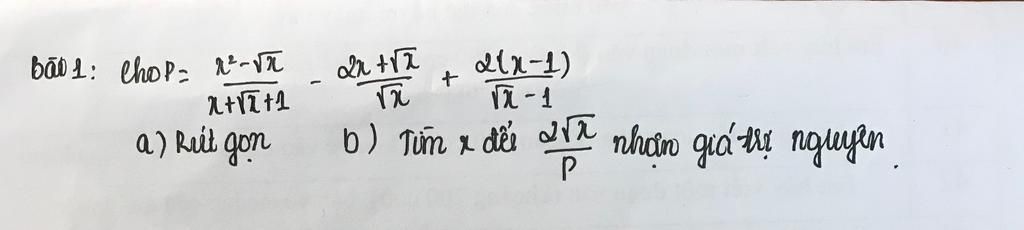 Bài 1: Cho P = \frac{x² - √x}{x + √x + 1} - \frac{2x + √x}{√x} + \frac{2(x - 1)}{√x - 1}
a) Rút gọn b) Tìm x để \frac{2√x}{P} nhận giá trị nguyên.